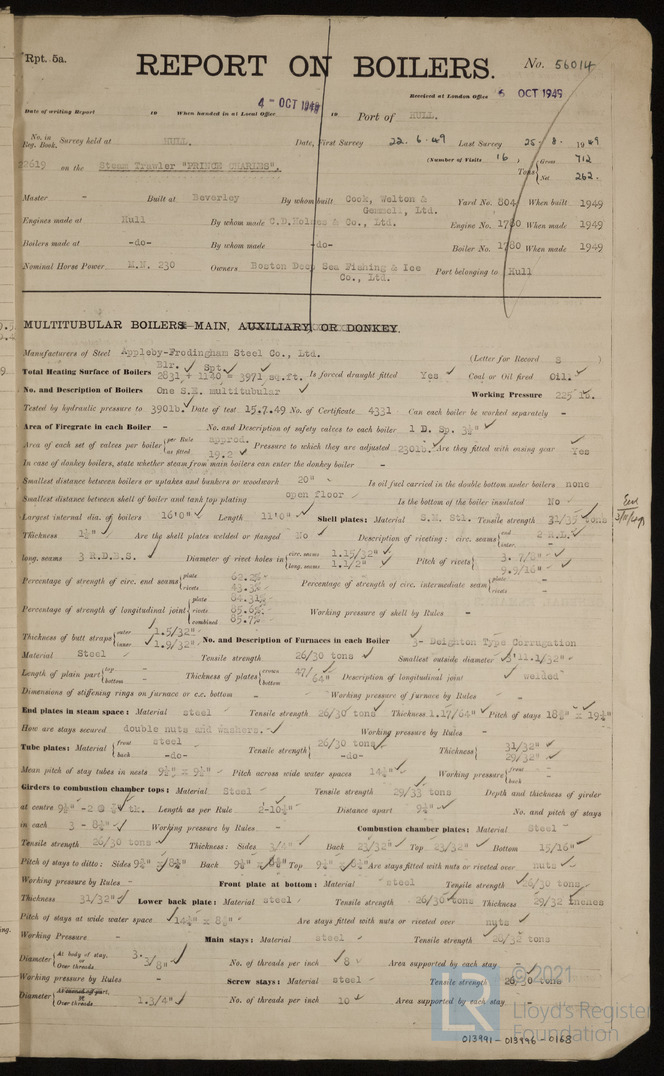 Rpt. 5a.
REPORT ON BOILERS.
No. 56014
Received at London Office 6 OCT 1949
4 - OCT 1949
Date of writing Report 19 When handed in at Local Office 19 Port of HULL.
No. in Reg. Book. Survey held at HULL. Date, First Survey 22.6.49 Last Survey 25.8.1949
(Number of Visits 16 ) Gross 712
on the Steam Trawler "PRINCE CHARLES". Tons Net 262.
Master - Built at Beverley By whom built Cook, Welton & Gemmell, Ltd. Yard No. 804 When built 1949
Engines made at Hull By whom made C.D.Holmes & Co., Ltd. Engine No. 1780 When made 1949
Boilers made at -do- By whom made -do- Boiler No. 1780 When made 1949
Nominal Horse Power M.N. 230 Owners Boston Deep Sea Fishing & Ice Co., Ltd. Port belonging to Hull
MULTITUBULAR BOILERS MAIN, AUXILIARY, OR DONKEY.
Manufacturers of Steel Appleby-Frodingham Steel Co., Ltd. (Letter for Record S )
Total Heating Surface of Boilers Blr. 2831 + Spt. 1140 = 3971 sq.ft. Is forced draught fitted Yes Coal or Oil fired Oil.
No. and Description of Boilers One S.E. multitubular Working Pressure 225 lb.
Tested by hydraulic pressure to 390lb. Date of test 15.7.49 No. of Certificate 4331 Can each boiler be worked separately -
Area of Firegrate in each Boiler - No. and Description of safety valves to each boiler 1 D. Sp. 3½"
Area of each set of valves per boiler per Rule approd. as fitted 19.2 Pressure to which they are adjusted 230lb. Are they fitted with easing gear Yes
In case of donkey boilers, state whether steam from main boilers can enter the donkey boiler -
Smallest distance between boilers or uptakes and bunkers or woodwork 20" Is oil fuel carried in the double bottom under boilers none
Smallest distance between shell of boiler and tank top plating open floor Is the bottom of the boiler insulated No
Largest internal dia. of boilers 16'0" Length 11'0" Shell plates: Material S.M. Stl. Tensile strength 31/35 tons
Thickness Are the shell plates welded or flanged No Description of riveting: circ. seams end 2 R.L. inter. -
long. seams 3 R.D.B.S. Diameter of rivet holes in circ. seams 1.15/32" long. seams 1.1/2" Pitch of rivets 3. 7/8" 9.9/16"
Percentage of strength of circ. end seams plate 62.2% rivets 43.3% Percentage of strength of circ. intermediate seam plate - rivets -
Percentage of strength of longitudinal joint plate 84.31% rivets 85.6% combined 85.7% Working pressure of shell by Rules -
Thickness of butt straps outer 1.5/32" inner 1.9/32" No. and Description of Furnaces in each Boiler 3- Deighton Type Corrugation
Material Steel Tensile strength 26/30 tons Smallest outside diameter 3'11.1/32"
Length of plain part top - bottom - Thickness of plates crown bottom 47/64" Description of longitudinal joint welded
Dimensions of stiffening rings on furnace or c.c. bottom - Working pressure of furnace by Rules -
End plates in steam space: Material steel Tensile strength 26/30 tons Thickness 1.17/64" Pitch of stays 18¾" x 19¼"
How are stays secured double nuts and washers. Working pressure by Rules -
Tube plates: Material front steel back -do- Tensile strength 26/30 tons -do- Thickness 31/32" 29/32"
Mean pitch of stay tubes in nests 9½" x 9½" Pitch across wide water spaces 14½" Working pressure front - back -
Girders to combustion chamber tops: Material Steel Tensile strength 29/33 tons Depth and thickness of girder
at centre 9½" -2 @ ¾" th. Length as per Rule 2-10¼" Distance apart 9¼" No. and pitch of stays
in each 3 - 8¼" Working pressure by Rules - Combustion chamber plates: Material Steel
Tensile strength 26/30 tons Thickness: Sides 3/4" Back 23/32" Top 23/32" Bottom 15/16"
Pitch of stays to ditto: Sides 9¼" x 8¼" Back 9¼" x 8¾" Top 9¼" x 8¼" Are stays fitted with nuts or riveted over nuts
Working pressure by Rules - Front plate at bottom: Material steel Tensile strength 26/30 tons
Thickness 31/32" Lower back plate: Material steel Tensile strength 26/30 tons Thickness 29/32 inches
Pitch of stays at wide water space 14¼" x 8½" Are stays fitted with nuts or riveted over nuts
Working Pressure - Main stays: Material steel Tensile strength 28/32 tons
Diameter At body of stay, or Over threads. 3. 3/8" No. of threads per inch 8 Area supported by each stay -
Working pressure by Rules - Screw stays: Material steel Tensile strength 26/30 tons
Diameter At turned off part, or Over threads. 1.3/4" No. of threads per inch 10 Area supported by each stay -
© 2021
Lloyd's Register
Foundation
013991-013996-0168